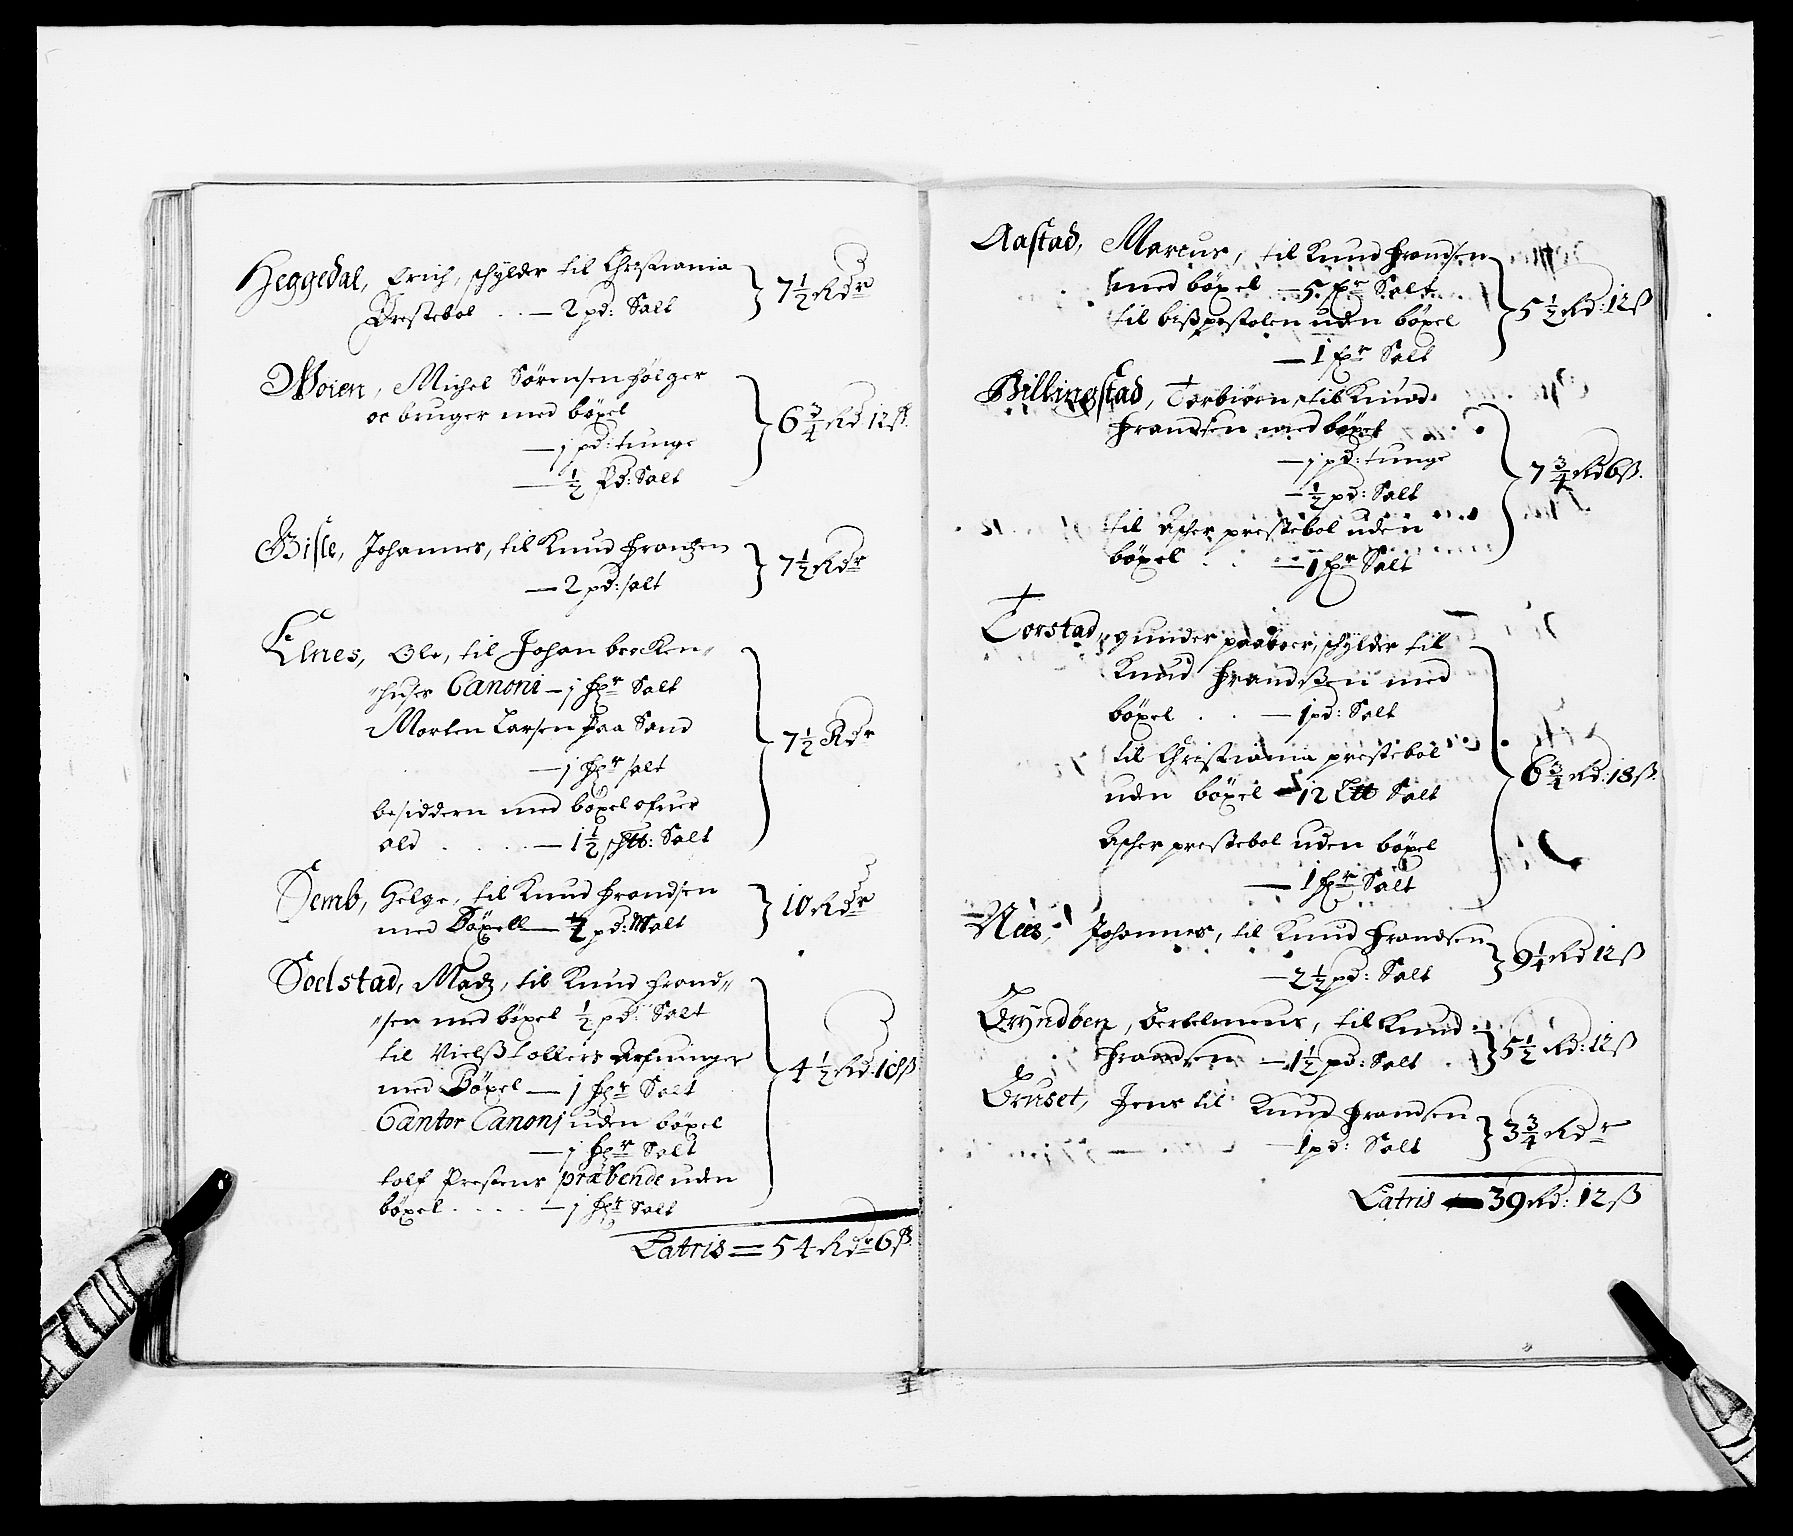 Heggedal, Erich, schylder til Christiania
Prestebol . . — 2 pd: Salt } 7½ Rdr
Woien, Michel Sørensen følger
oc bruger med böxel
— j pd: tunge
— ½ Pd: Salt } 6¾ Rd 12ß
Gisle, Johannes, til Knud Frantzen
— 2 pd: salt } 7½ Rdr
Elnes, Ole, til Johan brocken„
„huses Canoni — j fr Salt
Morten Larsen paa Sand
— j fr salt
besiddern med böxel ofuer
ald . . . . . — 1½ schtt: Salt } 7½ Rdr
Semb, Helge, til Knud Frandsen
med Böxell — pd: Malt } 10 Rdr
Soelstad, Madz, til Knud Frand„
„sen med böxel ½ pd: Salt
til Nielß tollers Arfuinger
med Böxel — j fr Salt
Cantor Canonj uden böxel
— j fr Salt
tolf Prestens præbende uden
böxel . . . . — j fr Salt } 4½ Rd: 18ß
Latris = 54 Rdr 6ß
Aastad, Marcus, til Knud Frandsen
med böxel — 5 fr Salt
til bißpestolen uden böxel
— 1 fr Salt } 5½ Rd: 12ß
Billingstad, Torbiörn, til Knud
Frandsen med böxel
— j pd: tunge
— ½ pd: Salt
til Asker prestebol uden
böxel . . — 1 fr Salt } 7¾ Rd 6ß.
Torstad, gunder paaboer, schylder til
Knud Frandßen med
böxel . . — 1 pd: Salt
til Christiania prestebol
uden böxel — 12 Ltt Salt
Asker prestebol uden böxel
— 1 fr Salt } 6¾ Rd: 18ß.
Nees, Johannes, til Knud Frandsen
— 2½ pd: Salt } 9¼ Rd 12ß
Bryndöen, Bertelmeus, til Knud
Frandsen — 1½ pd: Salt } 5½ Rd: 12ß
Bruset, Jens til Knud Frandsen
— 1 pd: Salt } 3¾ Rdr
Latris — 39 Rd: 12ß